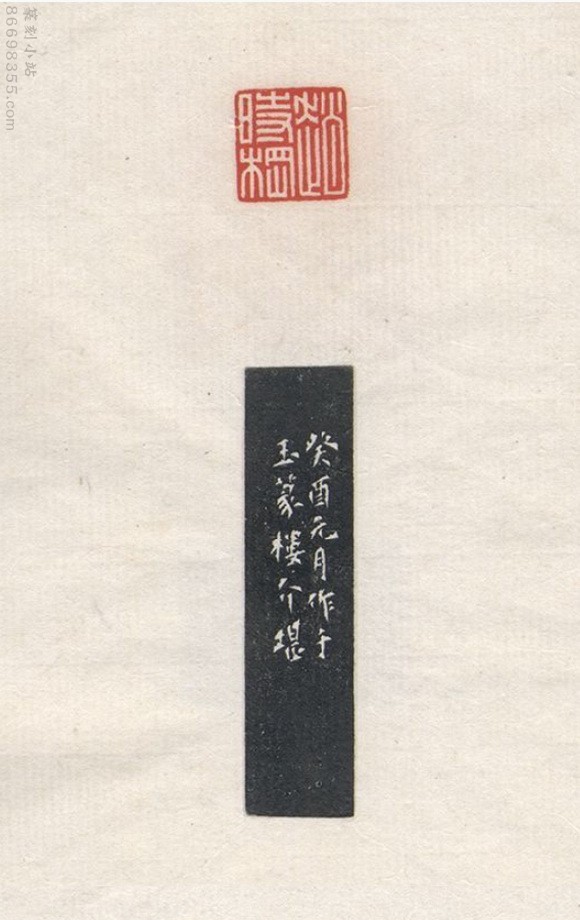 篆刻小站
86698355.com
趙
時棡
癸酉元月作于
玉篆樓介堪